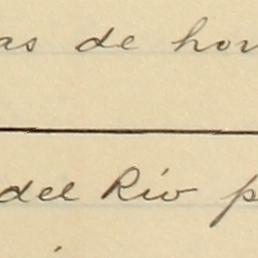 as de hon
del Río p